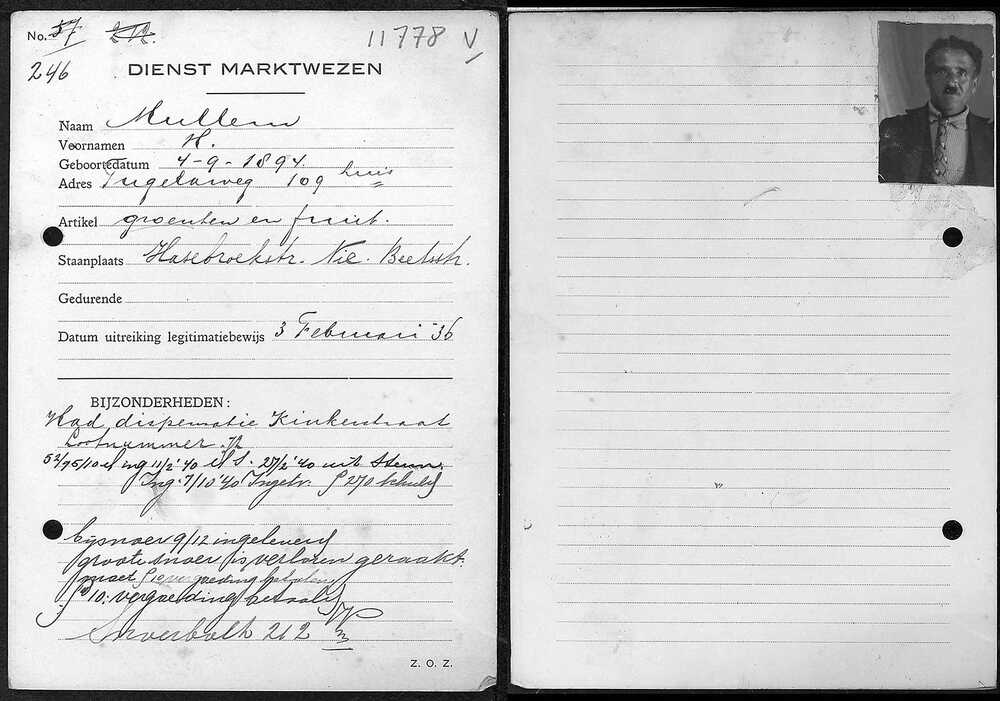 No. 57 212. 11778 V
246
DIENST MARKTWEZEN
Naam Mullem
Voornamen H.
Geboortedatum 4-9-1894.
Adres Tugelaweg 109 huis
Artikel groenten en fruit.
Staanplaats Hasebroekstr. Nic. Beetsstr.
Gedurende
Datum uitreiking legitimatiebewijs 3 Februari '36
BIJZONDERHEDEN:
Had dispensatie Kinkerstraat
Lootnummer
ing 11/2 '40 27/2 '40 uit Steun.
Ing. 7/10 '40 Ingetr. f 270 schuld
9/12 ingeleverd
groote snoer is verloren geraakt.
moet f 10 vergoeding betalen
f 10.- vergoeding betaald
212
Z. O. Z.